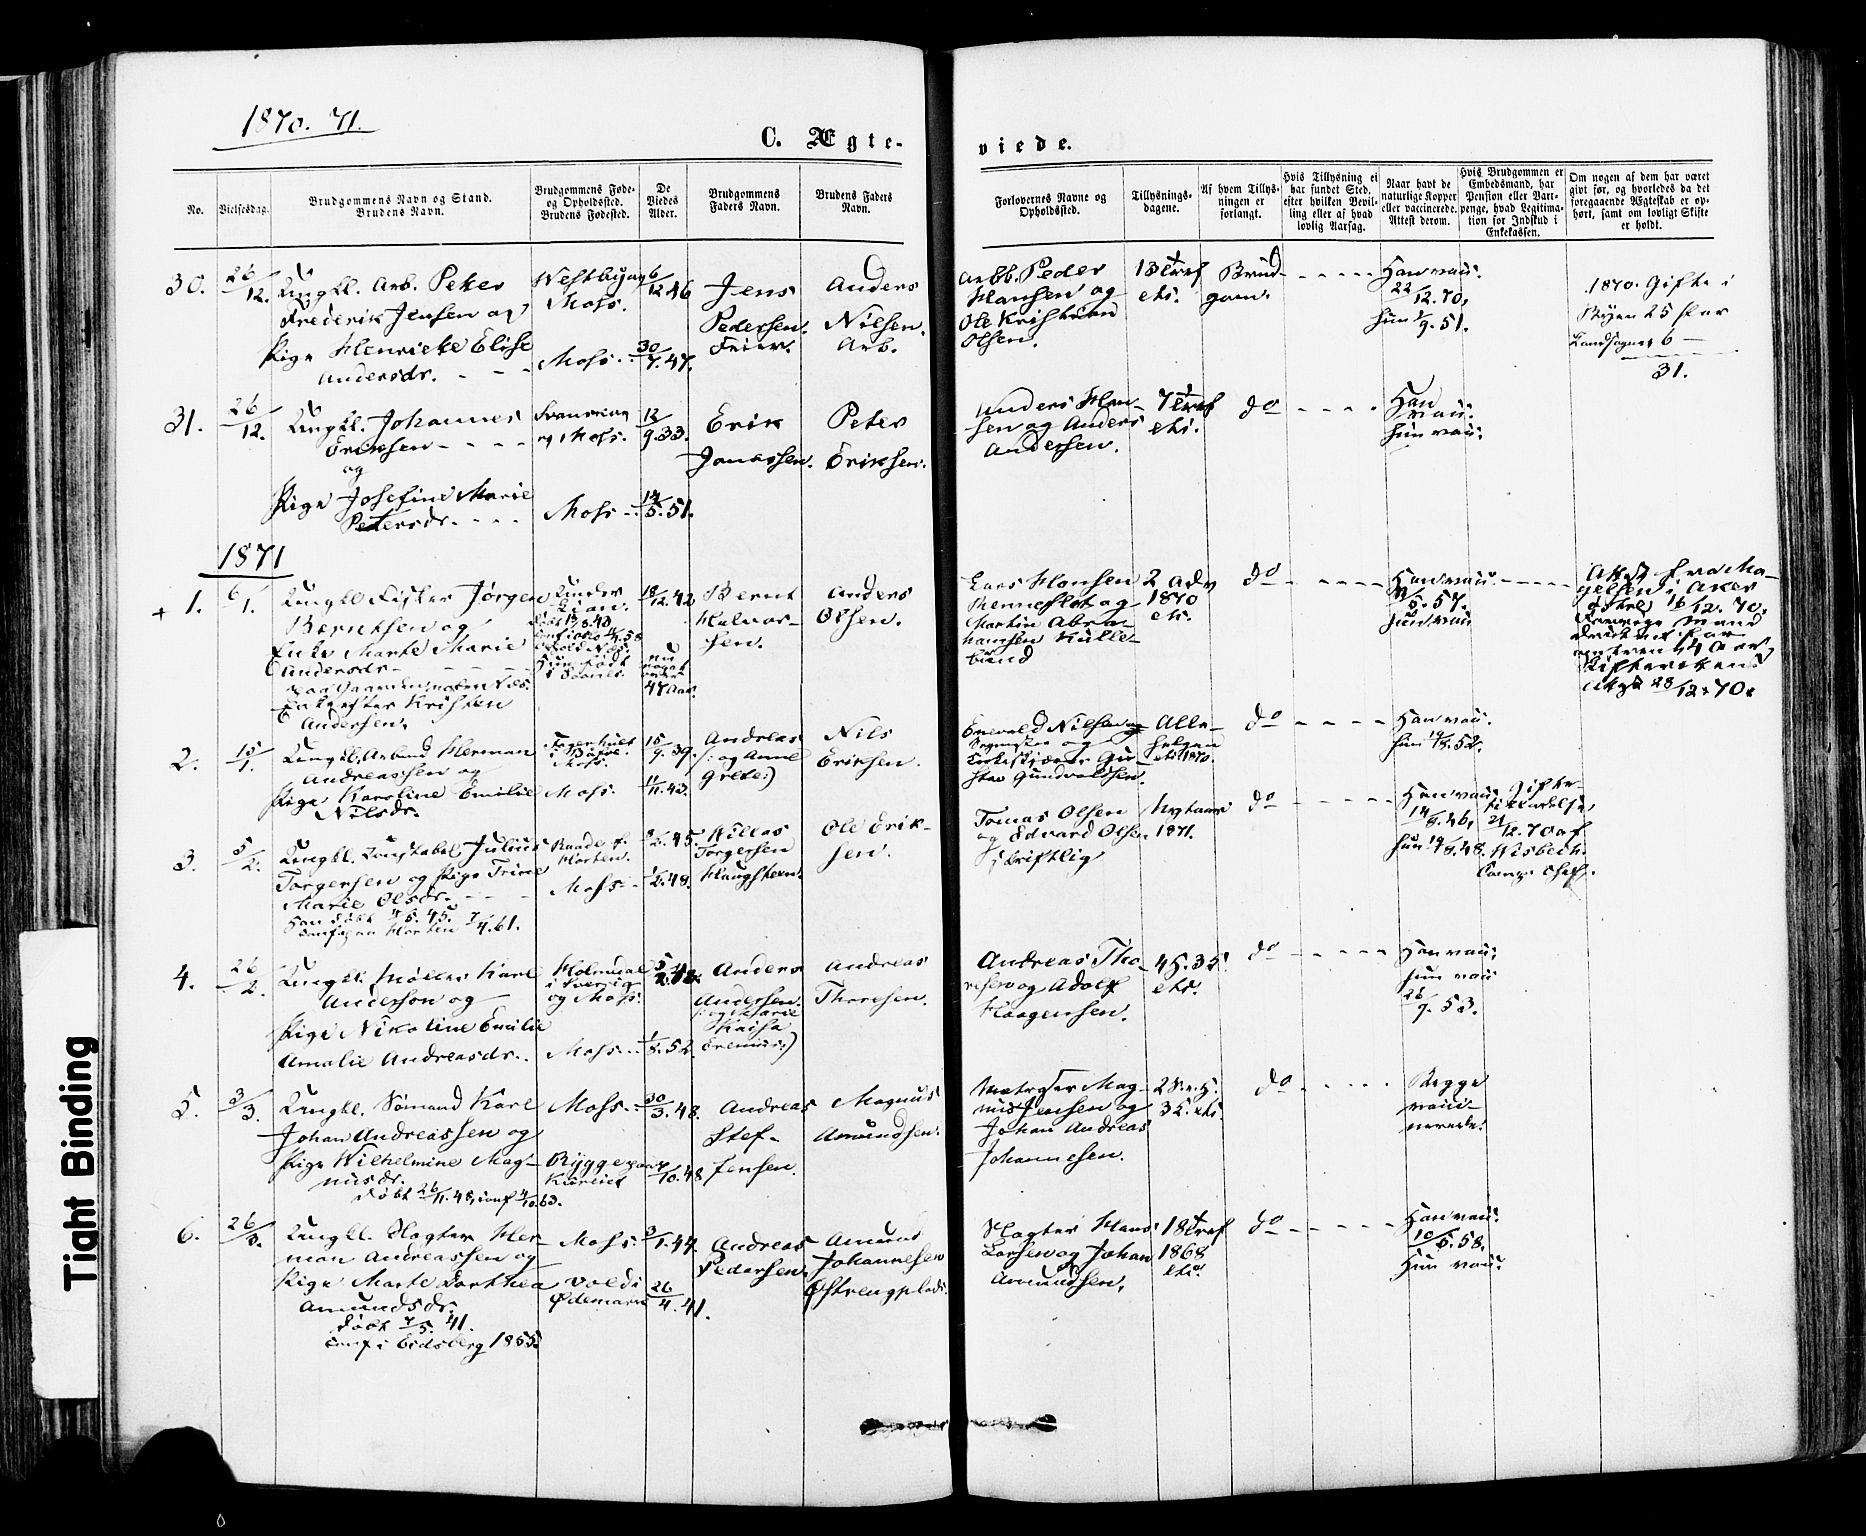 1870. 71.
C. Ægte-
viede.
No.
Vielsesdag.
Brudgommens Navn og Stand.
Brudens Navn.
Brudgommens Føde-
og Opholdssted.
Brudens Fødested.
De
Viedes
Alder.
Brudgommens
Faders Navn.
Brudens Faders
Navn.
Forlovernes Navne og
Opholdssted.
Tillysnings-
dagene.
Af hvem Tillys-
ningen er
forlangt.
Hvis Tillysning ei
har fundet Sted,
efter hvilken Bevil-
ling eller af hvad
lovlig Aarsag.
Naar havt de
naturlige Kopper
eller vaccinerede.
Attest derom.
Hvis Brudgommen er
Embedsmand, har
Pension eller Vart-
penge, hvad Legitima-
tion for Indskud i
Enkekassen.
Om nogen af dem har været
gift før, og hvorledes da det
foregaaende Ægteskab er op-
hørt, samt om lovligt Skifte
er holdt.
30.
26/12.
Ungkl. Arb. Peter
Frederik Jensen og
Pige Henrieke Elise
Andersdr.
Vestbyen
Moss.
Moss.
6/12 46
30/7. 47.
Jens
Pedersen.
Feier.
Anders
Nilsen.
Arb.
Arbb. Peder
Hansen og
Ole Kristian
Olsen.
13 Tref
etc.
Brud-
gom.
Han vac.
22/12. 70,
hun 1/9. 51.
1870. Gifte i
Byen 25 Par
Landsognet 6 —
31.
31.
26/12.
Ungkl. Johannes
Eriksen
og
Pige Josefine Marie
Petersdr.
og Moss.
Moss
12/9. 33.
14/5. 51.
Erik
Jonassen.
Peter
Eriksen.
Anders Han-
sen og Anders
Andersen.
7 Tref
etc.
do
Han
vac.
hun vac.
1871
+ 1.
6/1.
Ungkl. Fisker Jørgen
Berntsen og
Enke Marte Marie
Andersdr
Kristen
Andersen.
18/12. 42
nu
noget
over
47 Aar.
Bernt
Halvor-
sen.
Anders
Olsen.
Lars Hansen
Renneflot og
Martin Abra-
hamsen Kulle-
bund
2 Adv
1870
etc.
do
Han vac.
5. 57.
hun vac
Att. fra Ma-
gelsen i Aker
16/12. 70.
Mand
druknet for
omtrent 4 Aar,
Skifterettens
Att 28/12. 70.
2.
15/1.
Ungkl. Arbmd Herman
Andreassen og
Pige Karoline Emilie
Nilsdr.
Moss.
Moss.
15/9. 39.
11/11. 42.
Andreas
(: og Anne
Grete:)
Nils
Eriksen.
Enevold Nilsen og
og
Kirketjener Gu-
stav Gundvaldsen.
Alle-
helgen
etc 1870.
do
Han vac.
hun 19/8. 52.
3.
5/2.
Ungkl. Konstabel Julius
Torgersen og Pige Trine
Marie Olsdr.
Han døbt 4/5. 45.
Konf og fra Horten 7/4. 61.
Raade og
Horten.
Moss
45.
48.
Nillas
Torgersen
Haugsteen.
Ole Erik-
sen.
Tomas Olsen
og Edvard Olsen
skriftlig
Nytaar
1871.
do
Han vac.
14/8. 46,
hun 19/8. 48.
Gifte-
tilladelse,
21/12. 70 af
Wisbech.
Comp. Chef.
4.
26/2.
Ungkl. Møller Karl
Anderson og
Pige Nikoline Emilie
Amalie Andreasdr.
Holmedal
i Sverig
og Moss.
Moss
1/8. 52.
Anders
Andersen.
(: og Marie
Kaisa
Andreas
Thoresen.
Andreas Tho-
resen og Adolf
Haagensen.
45. 35.
etc.
do
Han vac.
hun vac
26/9. 53.
5.
3/3.
Ungkl. Sømand Karl
Johan Andreassen og
Pige Wilhelmine Mag-
nusdr.
Døbt 26/11. 48, conf 4/10. 63.
Moss
Rygge
30/3. 48.
10. 48
Andreas
Stef-
Jensen.
Magnus
Amundsen.
Matroser Mag-
nus Jensen og
Johan Andreas
Johannesen.
28. og
35. etc.
do
Begge
vacci-
nerede.
6.
26/3.
Ungkl. Slagter Her-
man Andreassen og
Pige Marte Dorthea
Amundsdr.
Døbt 7/5. 41.
conf i Eidsberg 1855.
Moss.
Vold i
Ødemark
3/1. 44.
26/4. 41.
Andreas
Pedersen.
Amund
Johannesen
Østrengplads.
Slagter Hans
Larsen og Johan
Amundsen.
18 Tref
1868
etc.
do
Han vac.
10/5. 58.
Hun vac.
Tight Binding